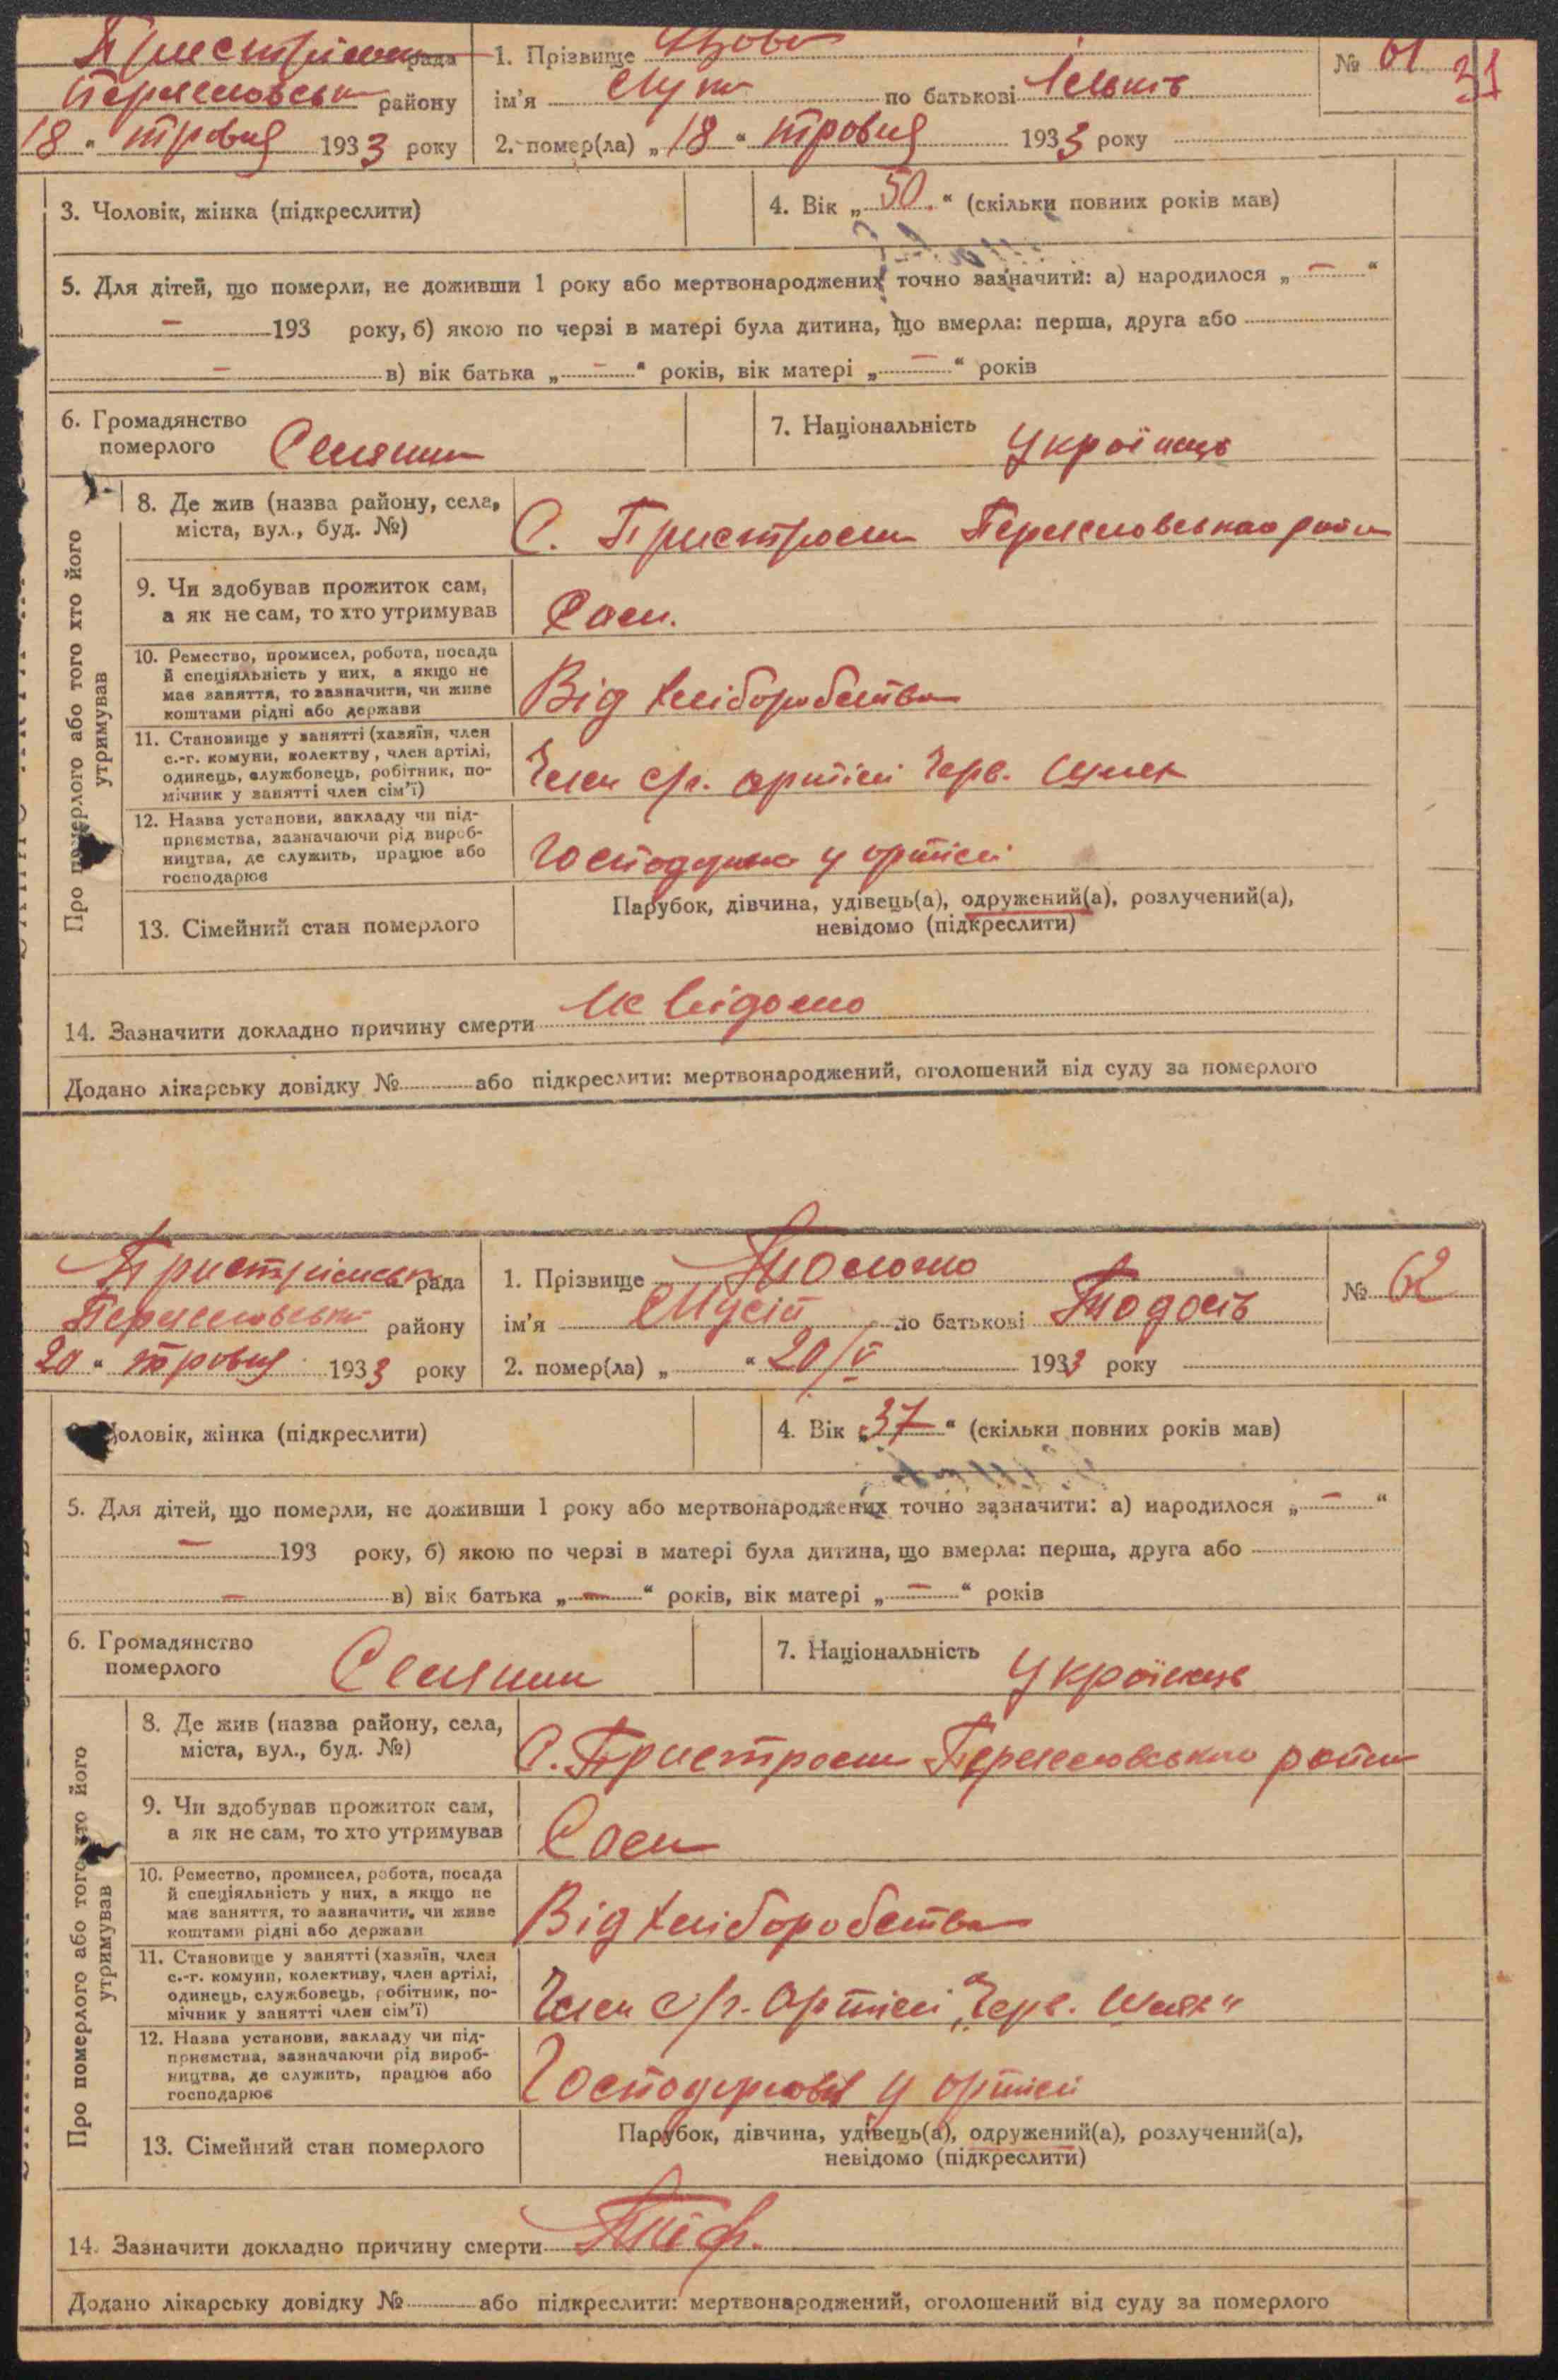 рада 1. Прізвище № 61 31
району ім'я по батькові
18 " травня 1933 року 2. помер(ла) „ 18 " травня 1933 року
3. Чоловік, жінка (підкреслити) 4. Вік „ 50. " (скільки повних років мав)
5. Для дітей, що померли, не доживши 1 року або мертвонароджених точно зазначити: а) народилося „ — "
— 193 року, б) якою по черзі в матері була дитина, що вмерла: перша, друга або
— в) вік батька „ — " років, вік матері „ — " років
6. Громадянство
померлого Селянин 7. Національність Українець
8. Де жив (назва району, села,
міста, вул., буд. №) С. Пристроми Переяславського район
9. Чи здобував прожиток сам,
а як не сам, то хто утримував Сам.
10. Ремество, промисел, робота, посада
й спеціяльність у них, а якщо не
має заняття, то зазначити, чи живе
коштами рідні або держави Від хліборобства
11. Становище у занятті (хазяїн, член
с.-г. комуни, колектву, член артілі,
одинець, службовець, робітник, по-
мічник у занятті член сім'ї) Член с/г. артілі Черв. Шлях
12. Назва установи, закладу чи під-
приємства, зазначаючи рід вироб-
ництва, де служить, працює або
господарює у артілі
Про померлого або того хто його
утримував
13. Сімейний стан померлого Парубок, дівчина, удівець(а), одружений(а), розлучений(а),
невідомо (підкреслити)
14. Зазначити докладно причину смерти Не відомо
Додано лікарську довідку № або підкреслити: мертвонароджений, оголошений від суду за померлого
рада 1. Прізвище № 62
району ім'я Мусій по батькові Тодосів
20 " травня 1933 року 2. помер(ла) „ " 20/V 1933 року
Чоловік, жінка (підкреслити) 4. Вік „ 37 " (скільки повних років мав)
5. Для дітей, що померли, не доживши 1 року або мертвонароджених точно зазначити: а) народилося „ — "
— 193 року, б) якою по черзі в матері була дитина, що вмерла: перша, друга або
— в) вік батька „ — " років, вік матері „ — " років
6. Громадянство
померлого Селянин 7. Національність Українець
8. Де жив (назва району, села,
міста, вул., буд. №) С. Пристроми Переяславського район
9. Чи здобував прожиток сам,
а як не сам, то хто утримував Сам
10. Ремество, промисел, робота, посада
й спеціяльність у них, а якщо не
має заняття, то зазначити, чи живе
коштами рідні або держави Від хліборобства
11. Становище у занятті (хазяїн, член
с.-г. комуни, колективу, член артілі,
одинець, службовець, робітник, по-
мічник у занятті член сім'ї) Член с/г. Артілі „Черв. Шлях"
12. Назва установи, закладу чи під-
приємства, зазначаючи рід вироб-
ництва, де служить, працює або
господарює Господарював у артілі
Про померлого або того хто його
утримував
13. Сімейний стан померлого Парубок, дівчина, удівець(а), одружений(а), розлучений(а),
невідомо (підкреслити)
14. Зазначити докладно причину смерти Тиф.
Додано лікарську довідку № або підкреслити: мертвонароджений, оголошений від суду за померлого